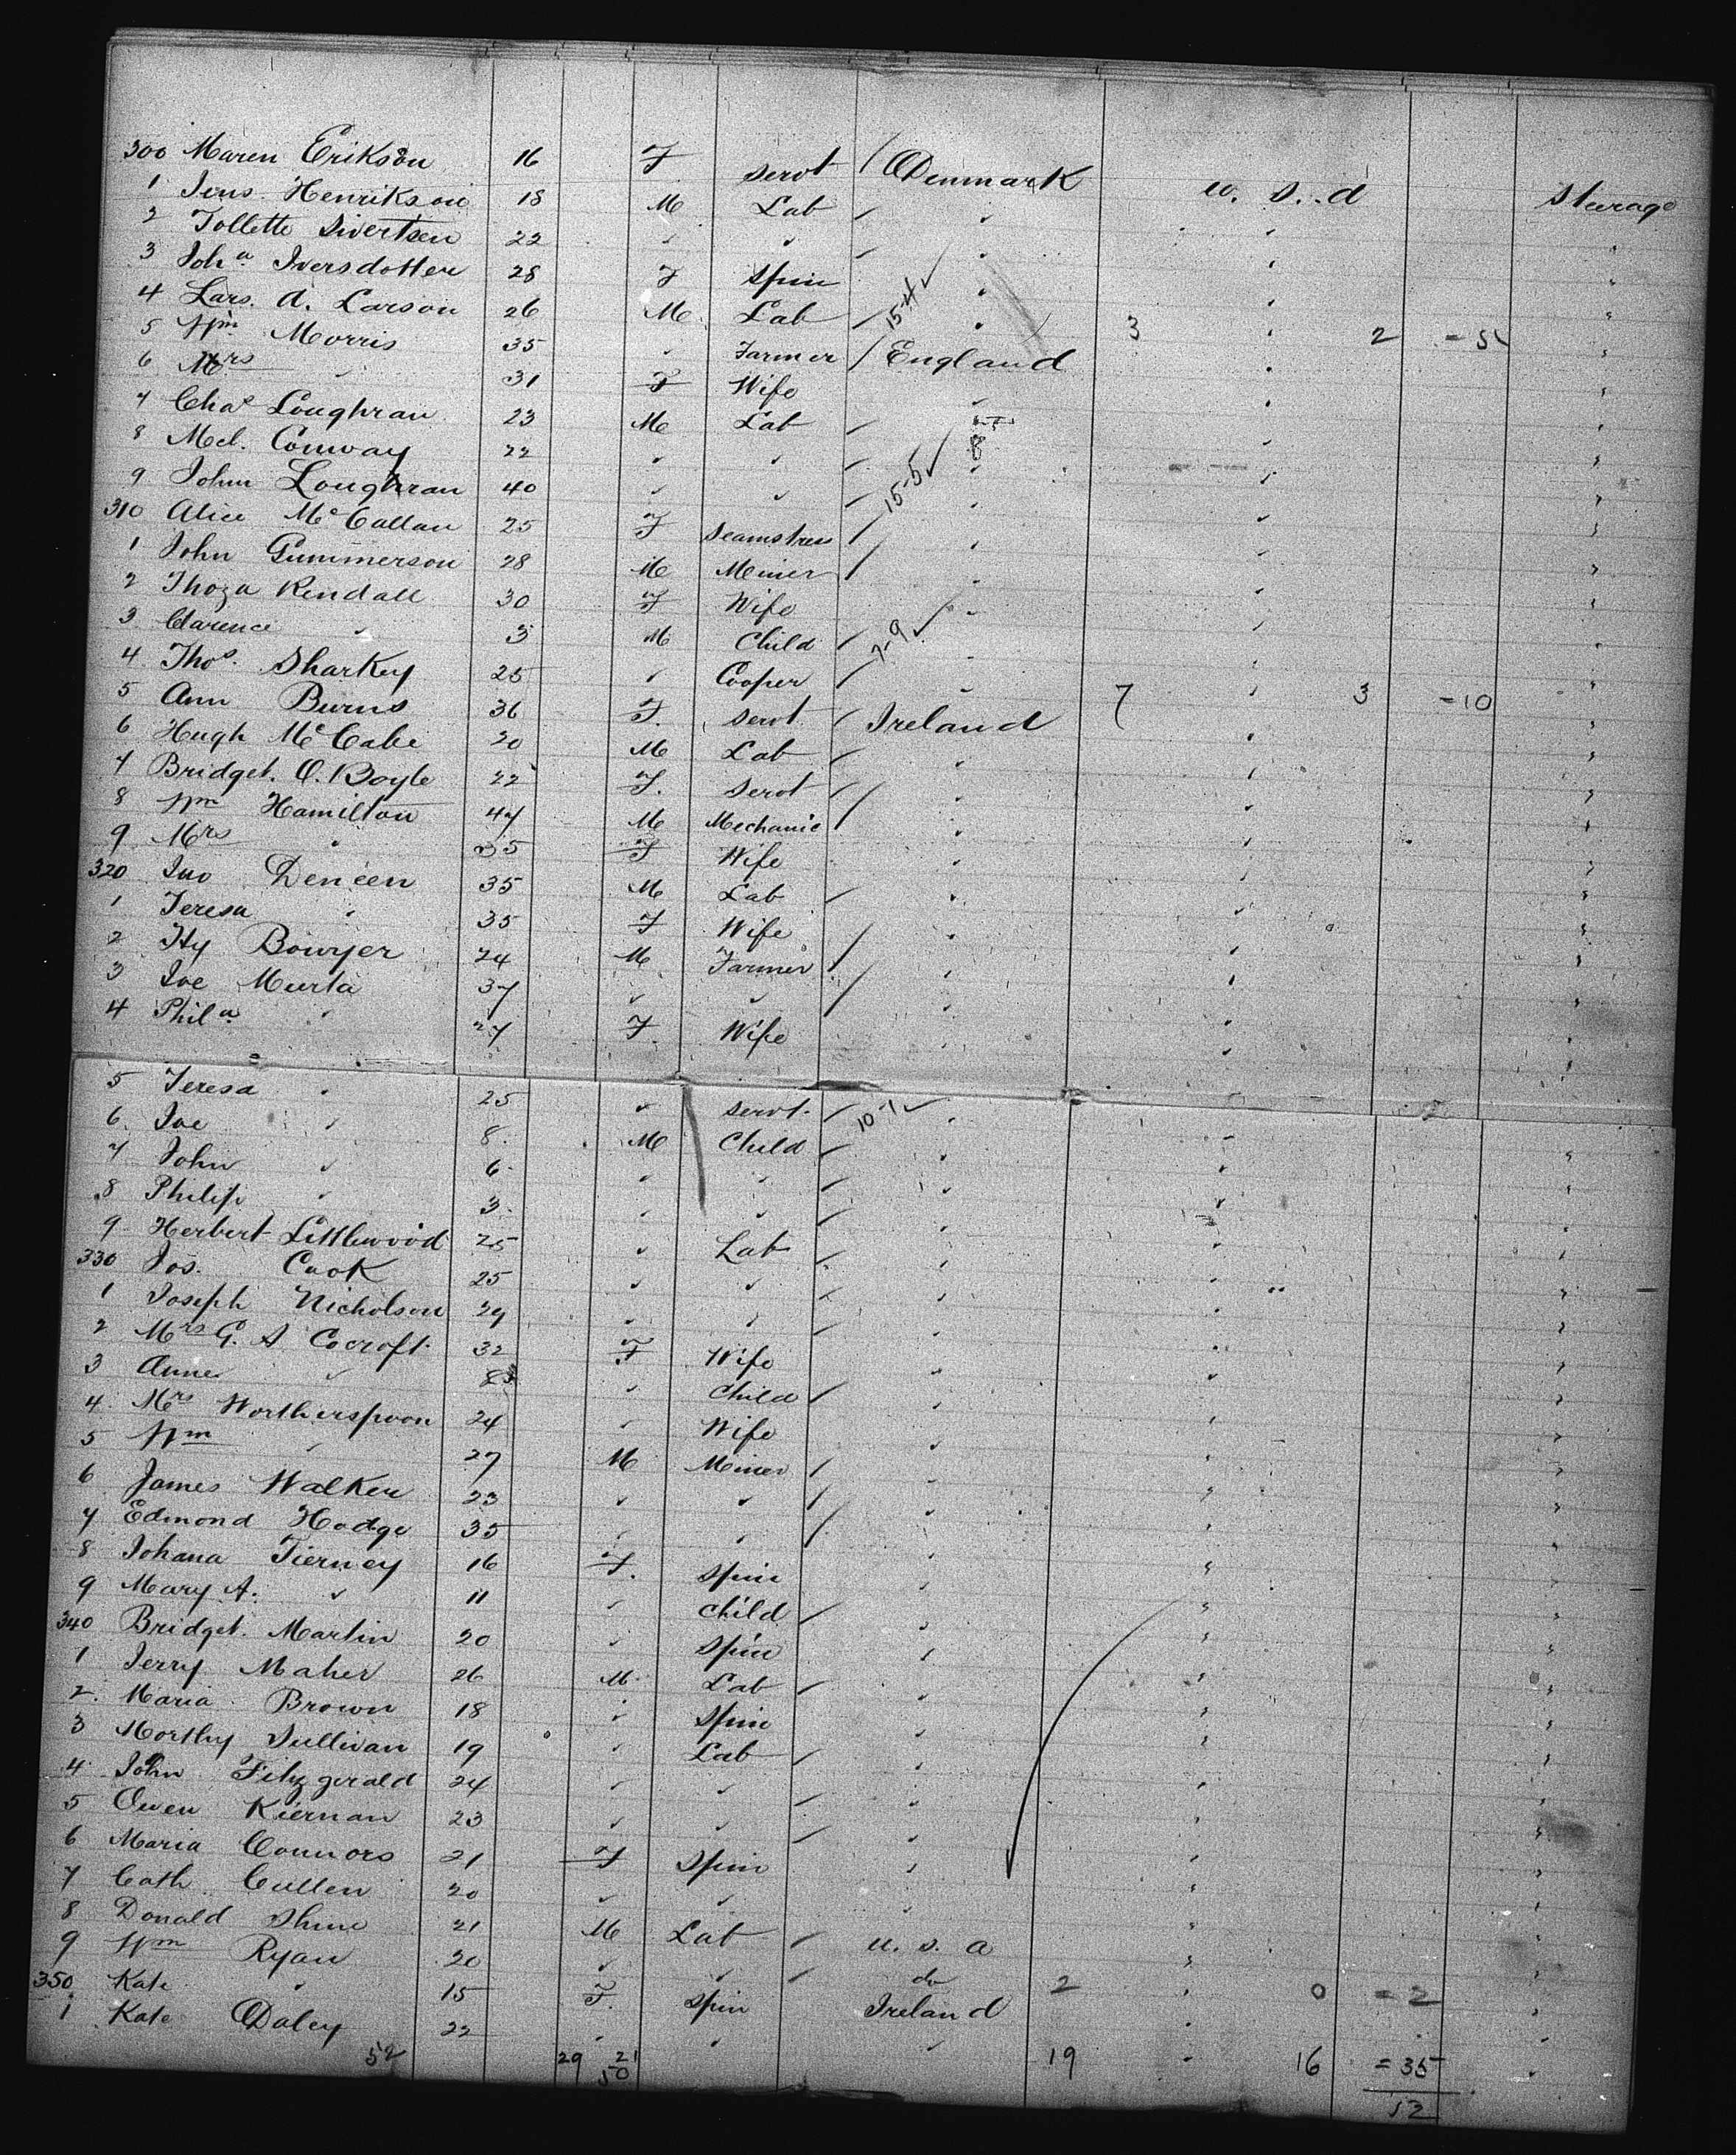 300 Maren Erikson 16 F Servt / Denmark U. S. A Steerage
1 Jens Henrikson 18 M Lab / " " "
2 Tollette Sivertsen 22 " " / " " "
3 Joha Iversdotter 28 F Spin " " "
4 Lars. A. Larson 26 M Lab / 15-4 ✓ " 3 " 2 = 5 "
5 Wm Morris 35 " Farmer / England " "
6 Mrs " 31 F Wife " " "
7 Chas Loughran 23 M Lab / " " "
8 Mcl. Conway 22 " " / 8 " " "
9 John Loughran 40 " " / 15-5 ✓ " " "
310 Alice McCallan 25 F Seamstress / " " "
1 John Gummerson 28 M Miner / " " "
2 Thoza Kendall 30 F Wife " " "
3 Clarence " 3 M Child / 7-9 ✓ " " "
4 Thos. Sharkey 25 " Cooper / " 7 " 3 = 10 "
5 Ann Burns 36 F. Servt. / Ireland " "
6 Hugh McCabe 20 M Lab / " " "
7 Bridget. O. Boyle 22 F. Servt / " " "
8 Wm Hamilton 47 M Mechanic / " " "
9 Mrs " 35 F Wife " " "
320 Jno Deneen 35 M Lab / " " "
1 Teresa " 35 F Wife " " "
2 Hy Bowyer 24 M Farmer / " " "
3 Joe Murta 37 " " / " " "
4 Phila " 27 F. Wife " " "
5 Teresa " 25 " Servt. / 10-1 ✓ " " "
6 Joe " 8 M Child / " " "
7 John " 6 " " / " " "
8 Philip " 3 " " / " " "
9 Herbert Littlewood 25 " Lab / " " "
330 Jos. Cook 25 " " / " " "
1 Joseph Nicholson 29 " " / " " "
2 Mrs G. A Cocroft. 32 F Wife " " "
3 Annie " " Child / " " "
4 Mrs Wortherspoon 24 " Wife " " "
5 Wm " 27 M Miner / " " "
6 James Walker 23 " " / " " "
7 Edmond Hodge 35 " " / " " "
8 Johana Tierney 16 F. Spin " " "
9 Mary A. " 11 " Child / " " "
340 Bridget. Martin 20 " Spin " " "
1 Jerry Maher 26 M. Lab / " " "
2 Maria Brown 18 " Spin " " "
3 Morthy Sullivan 19 " Lab / " " "
4 John Fitzgerald 24 " " / " " "
5 Owen Kiernan 23 " " / " " "
6 Maria Connors 21 F Spin " " "
7 Cath. Cullen 20 " " " " "
8 Donald Shine 21 M Lab / U. S. A " "
9 Wm Ryan 20 " " / do 2 " 0 = 2 "
350 Kate " 15 F. Spin Ireland " "
1 Kate Daley 22 " " " 19 " 16 = 35 "
52 29 21
50 52